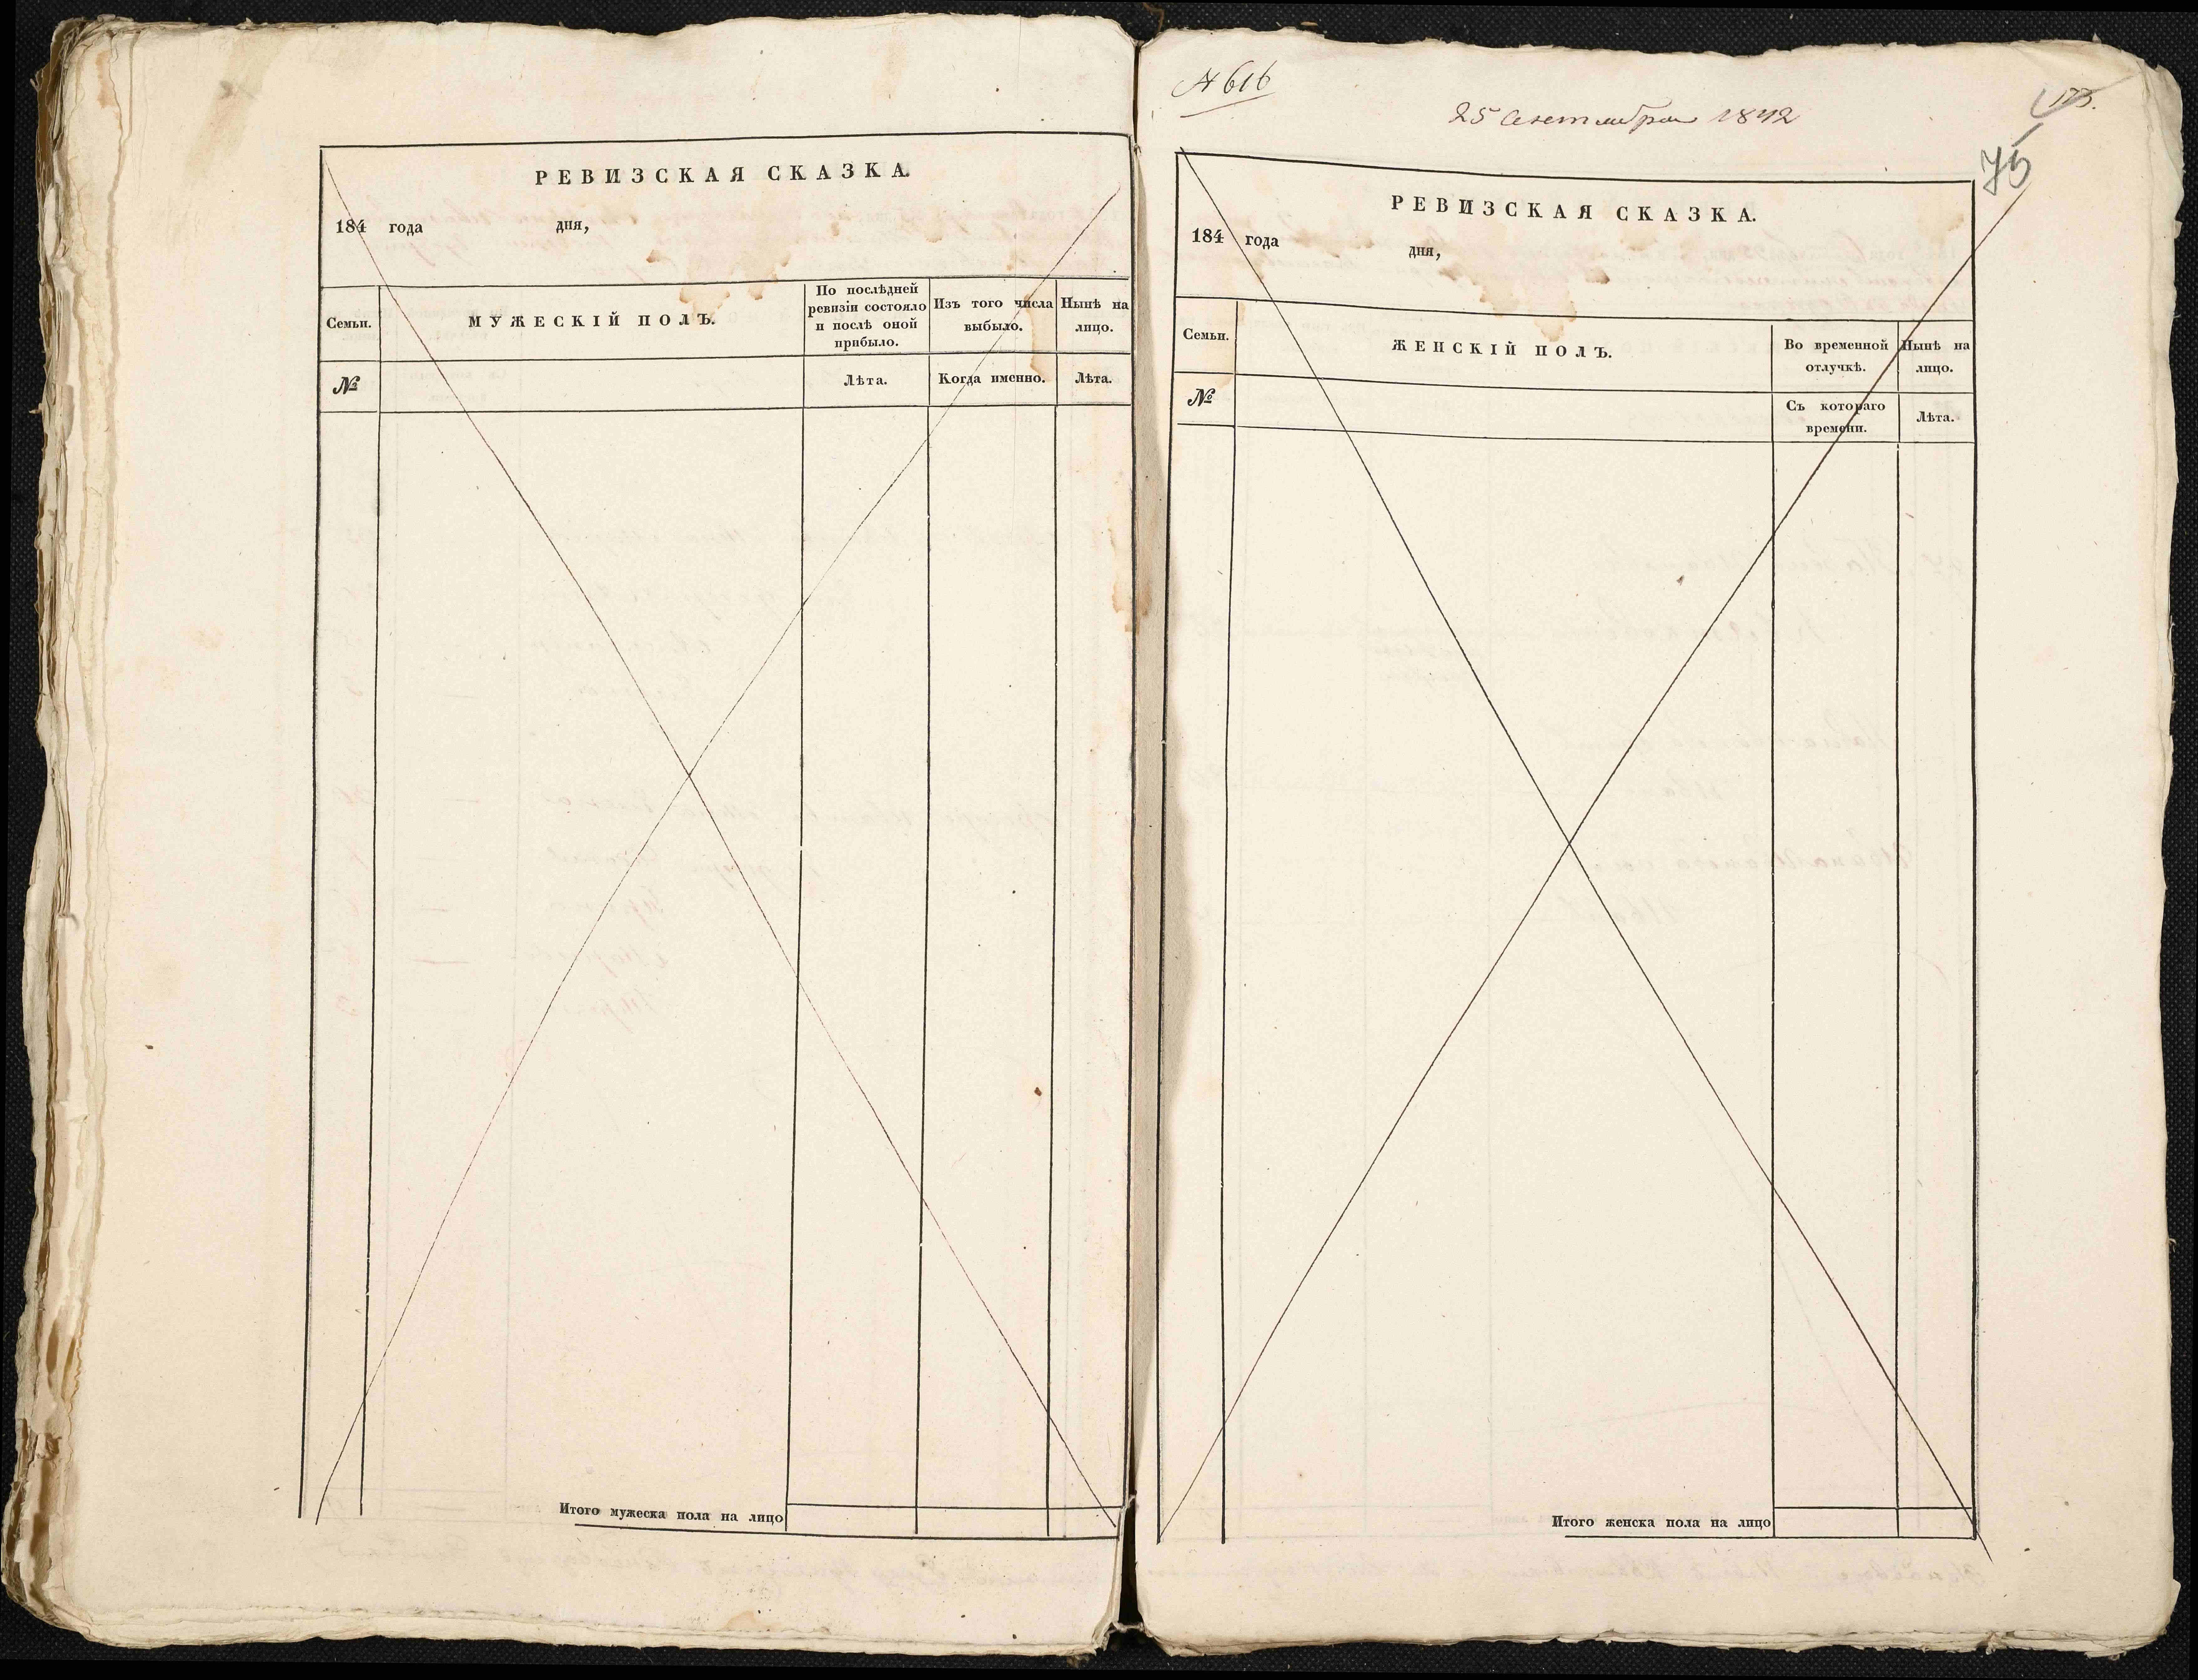 РЕВИЗСКАЯ СКАЗКА.
184 года дня,
Семьи.
МУЖЕСКІЙ ПОЛЪ.
По послѣдней
ревизіи состояло
и послѣ оной
прибыло.
Изъ того числа
выбыло.
Нынѣ на
лицо.
№
Лѣта.
Когда именно.
Лѣта.
Итого мужеска пола на лицо
№ 616
25 Сентября 1842
173.
75
РЕВИЗСКАЯ СКАЗКА.
184 года дня,
Семьи.
ЖЕНСКІЙ ПОЛЪ.
Во временной
отлучкѣ.
Нынѣ на
лицо.
№
Съ котораго
времени.
Лѣта.
Итого женска пола на лицо